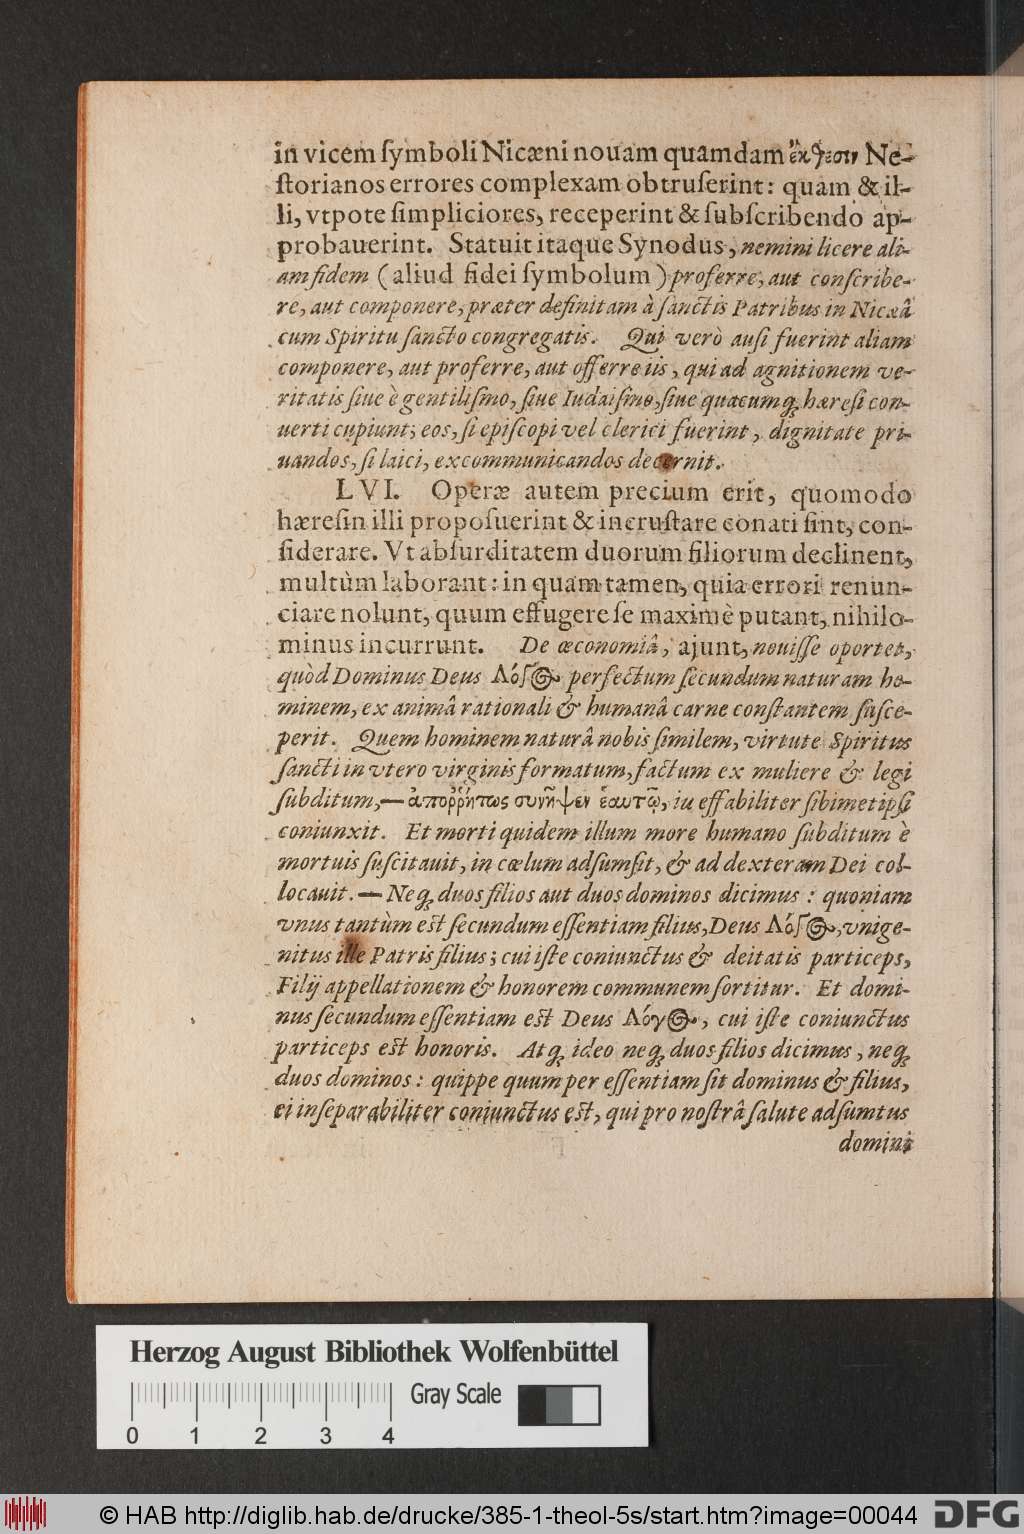 in vicem ſymboli Nicæni nouam quamdam ἔκθεσιν Ne-
ſtorianos errores complexam obtruſerint: quam & il-
li, vtpote ſimpliciores, receperint & ſubſcribendo ap-
probauerint. Statuit itaque Synodus, nemini licere ali-
am fidem (aliud fidei ſymbolum) proferre, aut conſcribe-
re, aut componere, præter definitam à ſanctis Patribus in Nicæâ
cum Spiritu ſancto congregatis. Qui verò auſi fuerint aliam
componere, aut proferre, aut offerre iis, qui ad agnitionem ve-
ritatis ſiue è gentiliſmo, ſiue Iudaiſmo, ſiue quacumq́; hæreſi con-
uerti cupiunt; eos, ſi epiſcopi vel clerici fuerint, dignitate pri-
uandos, ſi laici, excommunicandos decernit.
LVI. Operæ autem precium erit, quomodo
hæreſin illi propoſuerint & incruſtare conati ſint, con-
ſiderare. Vt abſurditatem duorum filiorum declinent,
multùm laborant: in quam tamen, quia errori renun-
ciare nolunt, quum effugere ſe maximè putant, nihilo-
minus incurrunt. De œconomiâ, ajunt, nouiſſe oportet,
quòd Dominus Deus Λόγος perfectum ſecundum naturam ho-
minem, ex animâ rationali & humanâ carne conſtantem ſuſce-
perit. Quem hominem naturâ nobis ſimilem, virtute Spiritus
ſancti in vtero virginis formatum, factum ex muliere & legi
ſubditum,— ἀποῤῥήτως συνῆψεν ἑαυτῷ, in effabiliter ſibimetipſi
coniunxit. Et morti quidem illum more humano ſubditum è
mortuis ſuſcitauit, in cœlum adſumſit, & ad dexteram Dei col-
locauit.— Neq́; duos filios aut duos dominos dicimus: quoniam
vnus tantùm eſt ſecundum eſſentiam filius, Deus Λόγος, vnige-
nitus ille Patris filius; cui iſte coniunctus & deitatis particeps,
Filij appellationem & honorem communem ſortitur. Et domi-
nus ſecundum eſſentiam eſt Deus Λόγος, cui iſte coniunctus
particeps eſt honoris. Atq́; ideo neq́; duos filios dicimus, neq́;
duos dominos: quippe quum per eſſentiam ſit dominus & filius,
ei inſeparabiliter coniunctus eſt, qui pro noſtrâ ſalute adſumtus
domini
Herzog August Bibliothek Wolfenbüttel
Gray Scale
0 1 2 3 4
© HAB http://diglib.hab.de/drucke/385-1-theol-5s/start.htm?image=00044
DFG